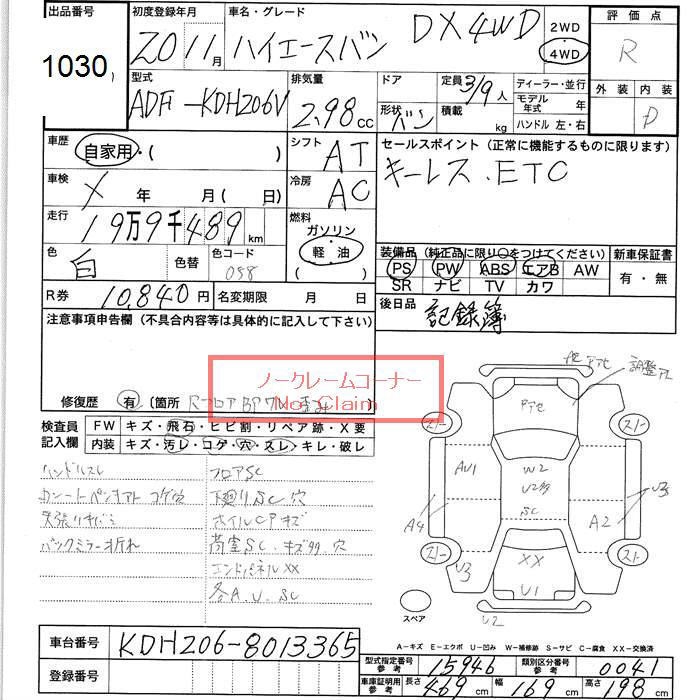 出品番号 初度登録年月 車名・グレード 評価点
1030 Z0 11月 ハイエースバン DX 4WD 2WD 4WD R
型式 排気量 ドア 定員 3/9人 ディーラー・並行 外装 内装
ADF-KDH206V 2.98cc 形状 バン 積載 kg モデル年式 年 D
ハンドル 左・右
車歴 自家用・( ) シフト AT セールスポイント (正常に機能するものに限ります)
車検 X 年 月 ( 日) 冷房 AC キーレス．ETC
走行 19万9千489km 燃料 ガソリン 軽油
色 白 色替 色コード 058
装備品 (純正品に限り○をつけてください) 新車保証書
PS PW ABS エアB AW 有・無
SR ナビ TV カワ
R券 10,840円 名変期限 月 日 後日品 記録簿
注意事項申告欄 (不具合内容等は具体的に記入して下さい)
ノークレームコーナー
No Claim
修復歴 有 (箇所
検査員記入欄 FW キズ・飛石・ヒビ割・リペア跡・X要
内装 キズ・汚レ・コゲ・穴・スレ・キレ・破レ
ハンドルスレ フロアSC
下廻りSC 穴
ホイルCPキズ
バックミラー折れ
エンドパネルXX
各A.U.SC
調整
Pアセ
AU1 W2
SC
A4 A2 U3
XX
U3 U1
U2
スペア
A－キズ E－エクボ U－凹み W－補修跡 S－サビ C－腐食 XX－交換済
車台番号 KDH206-8013365
型式指定番号 参考 15946 類別区分番号 参考 0041
登録番号
車庫証明用 参考 長さ 469cm 幅 169cm 高さ 198cm